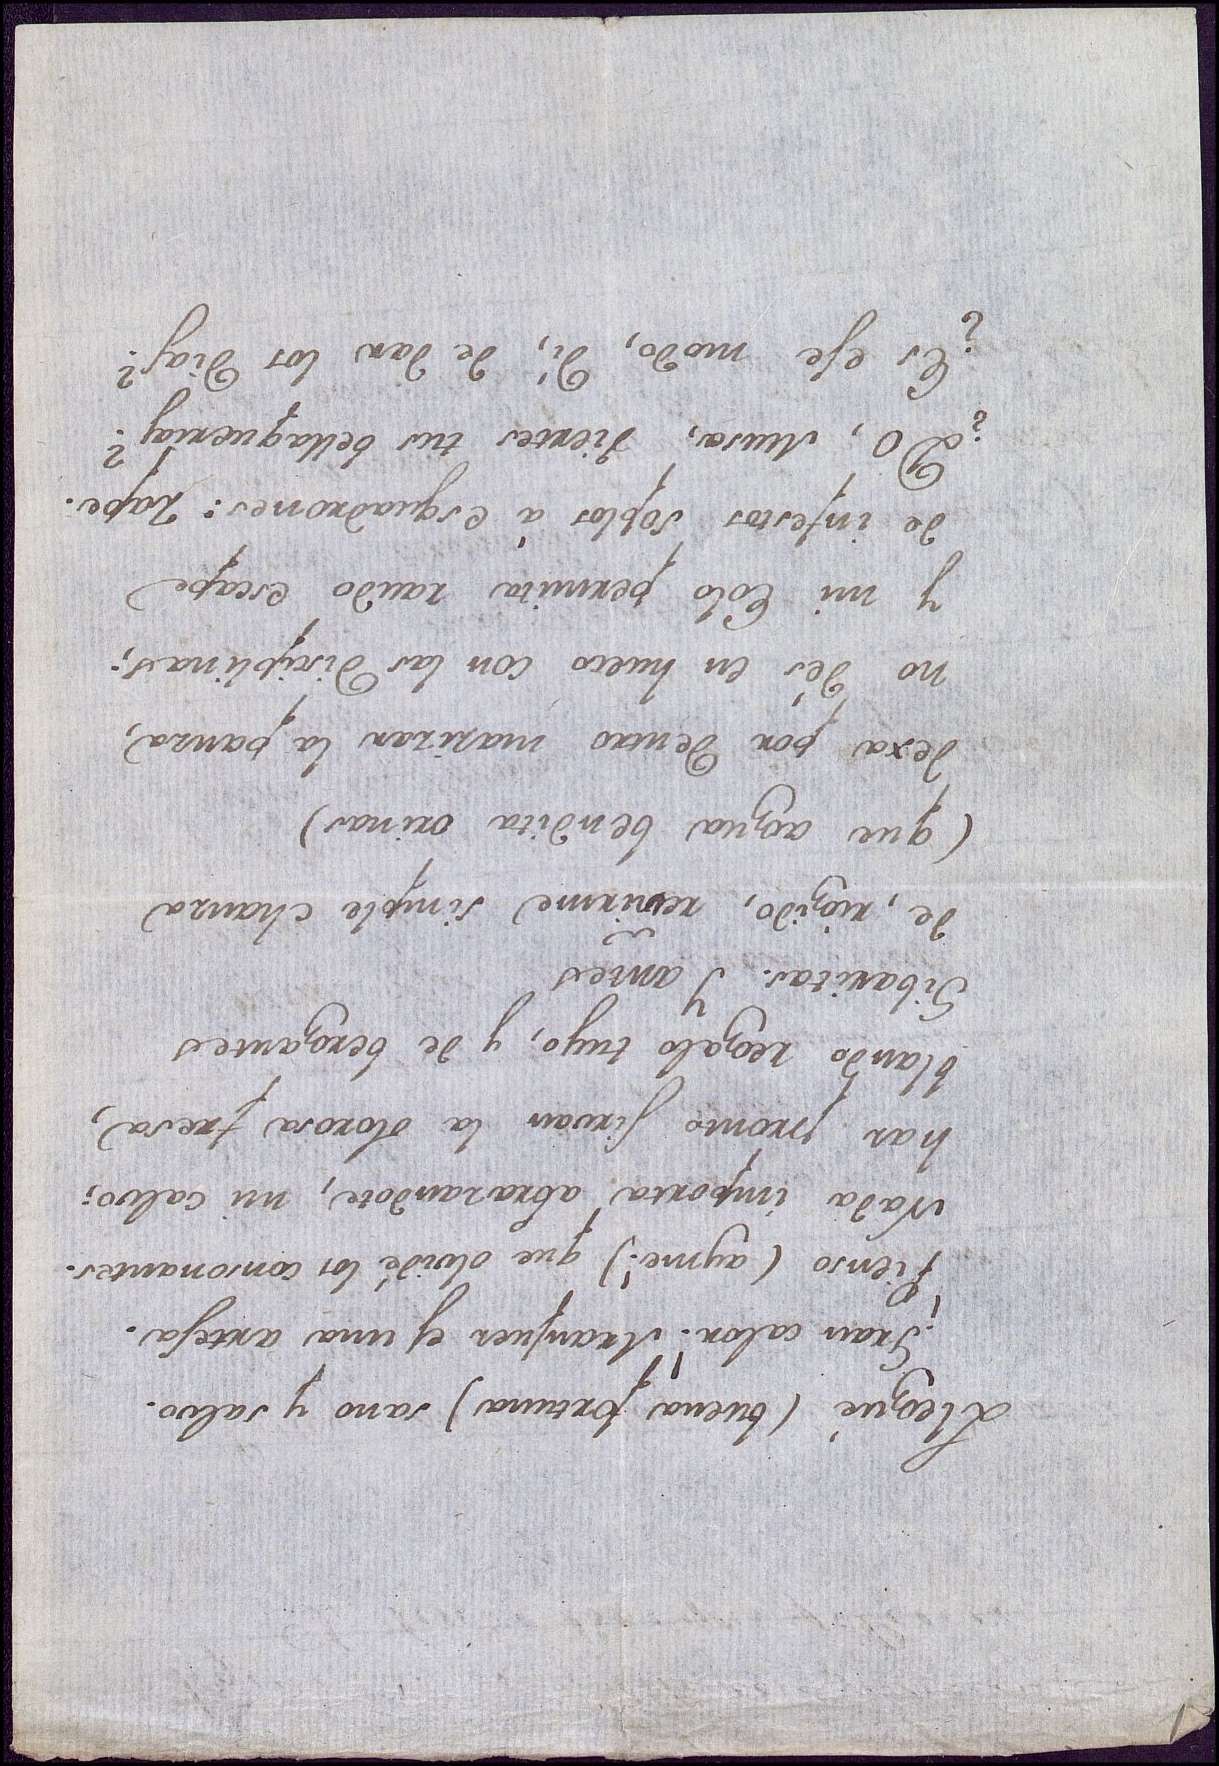 Llegué (buena fortuna) sano y salvo.
¡Gran calor! Aranjuez es una artesa.
Pienso (ayme!) que olvidé los consonantes.
Nada importa abrazandote, mi calvo;
haz pronto sirvan la olorosa fresa,
blando regalo tuyo, y de bergantes
Sibaritas. Y antes
de, rigido, reñirme simple chanza
(que agua bendita orinas)
dexa por dentro matizar la panza,
no des en hueco con las disciplinas;
y mi Eolo permita raudo escape
de infestos soplos á esquadrones: Zape.
¿Do, Musa, dientes tus bellaquerias?
¿Es ese modo, di, de dar los dias?